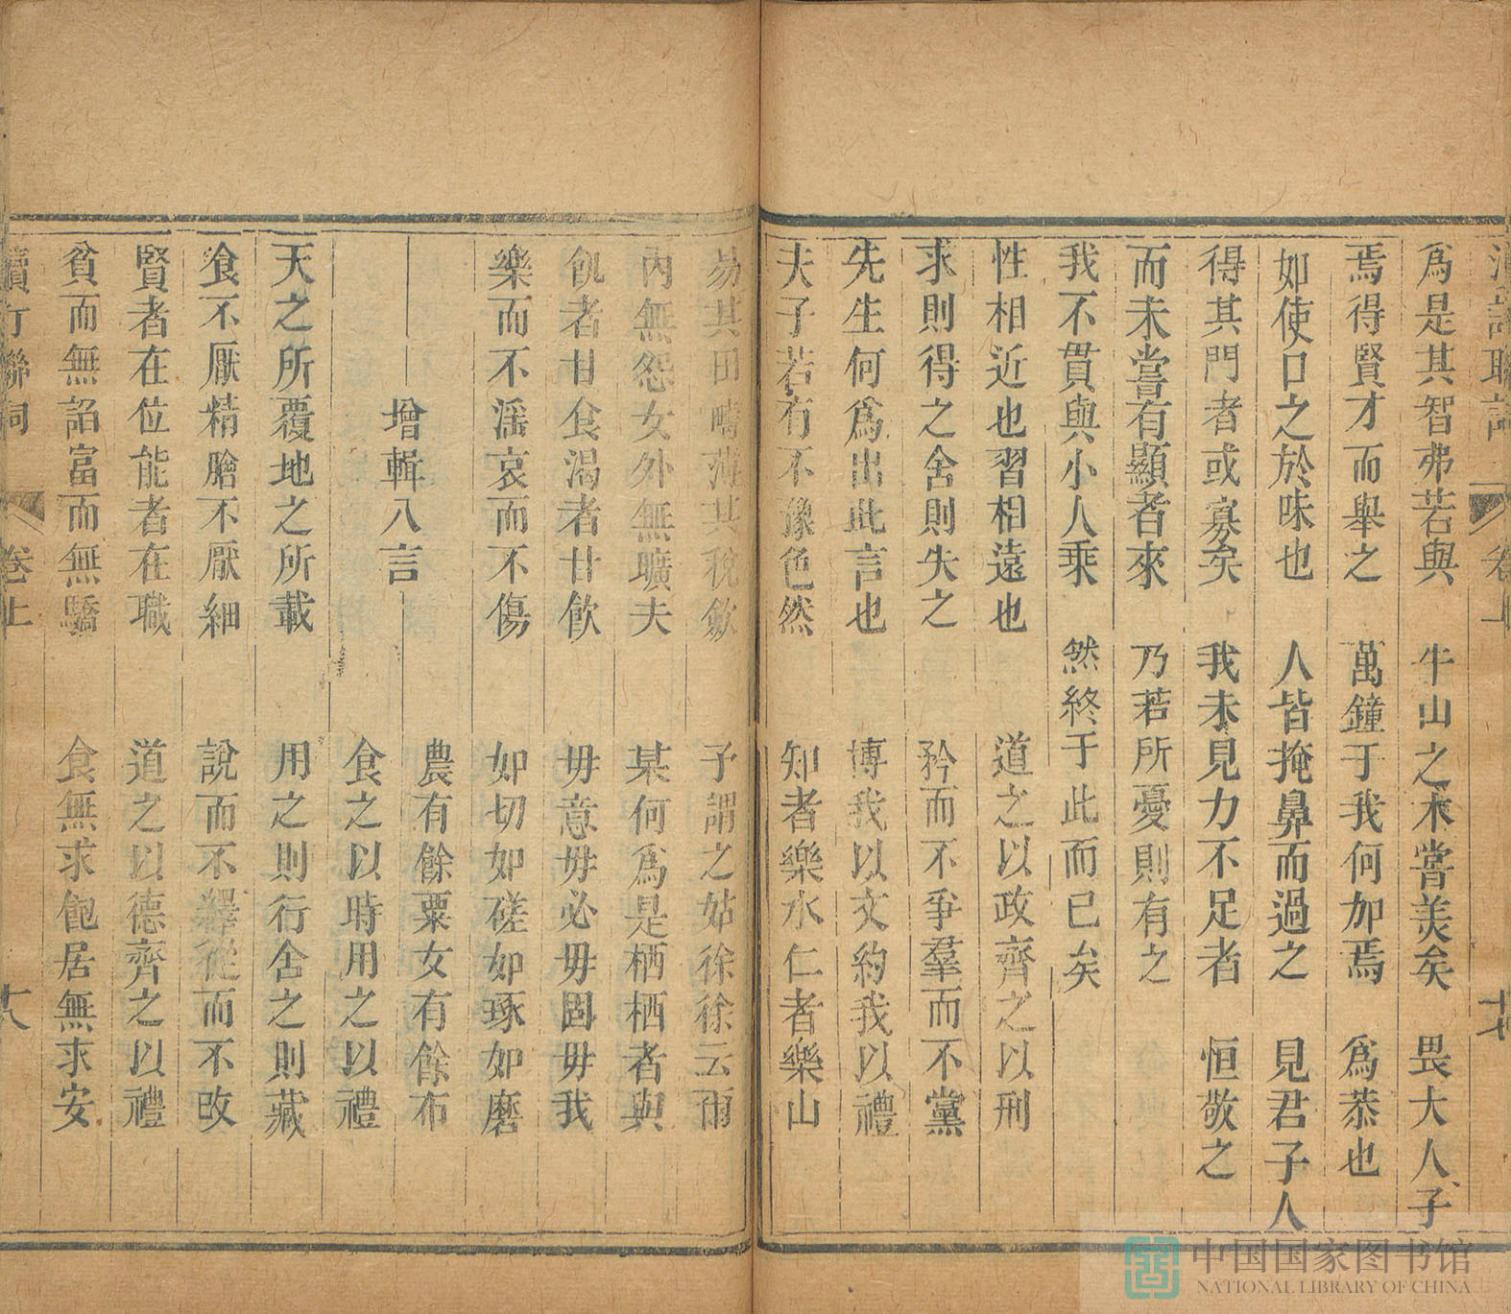 為是其智弗若與　牛山之木嘗美矣　畏大人子
焉得賢才而舉之　萬鐘于我何加焉　為恭也
如使口之於味也　人皆掩鼻而過之　見君子人
得其門者或寡矣　我未見力不足者　恒敬之
而未嘗有顯者來　乃若所憂則有之
我不貫與小人乘　然終于此而已矣
性相近也習相遠也　道之以政齊之以刑
求則得之舍則失之　矜而不爭羣而不黨
先生何為出此言也　博我以文約我以禮
夫子若有不豫色然　知者樂水仁者樂山
卷上
易其田疇薄其稅斂　予謂之姑徐徐云爾
內無怨女外無曠夫　某何為是栖栖者與
飢者甘食渴者甘飲　毋意毋必毋固毋我
樂而不淫哀而不傷　如切如磋如琢如磨
增輯八言　農有餘粟女有餘布
食之以時用之以禮
天之所覆地之所載　用之則行舍之則藏
食不厭精膾不厭細　說而不繹從而不改
賢者在位能者在職　道之以德齊之以禮
貧而無諂富而無驕　食無求飽居無求安
卷上
中国国家图书馆
NATIONAL LIBRARY OF CHINA